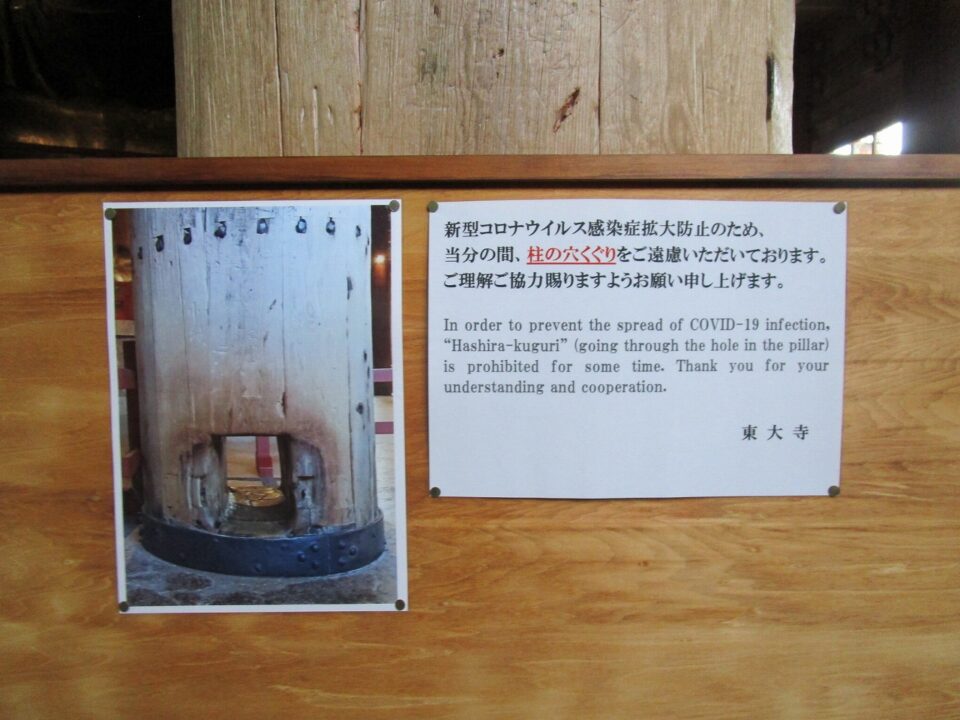 新型コロナウイルス感染症拡大防止のため、
当分の間、柱の穴くぐりをご遠慮いただいております。
ご理解ご協力賜りますようお願い申し上げます。
In order to prevent the spread of COVID-19 infection,
“Hashira-kuguri” (going through the hole in the pillar)
is prohibited for some time. Thank you for your
understanding and cooperation.
東 大 寺